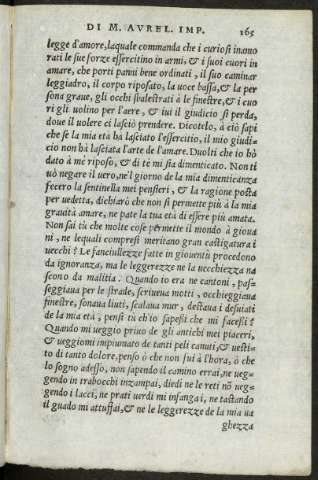 DI M. AVREL. IMP. 165
legge d'amore, laquale commanda che i curiosi inamo
rati le sue forze essercitino in armi, & i suoi cuori in
amare, che porti panni bene ordinati, il suo caminar
leggiadro, il corpo riposato, la uoce bassa, & la per
sona graue, gli occhi sbalestrati à le finestre, & i cuo
ri gli uolino per l'aere, & iui il giudicio si perda,
doue il uolere ci lasciò prendere. Dicotelo, à ciò sapi
che se la mia età ha lasciato l'essercitio, il mio giudi=
cio non hà lasciata l'arte de l'amare. Duolti che io hò
dato à me riposo, & di tè mi sia dimenticato. Non tì
uò negare il uero, ne'l giorno de la mia dimenticanza
fecero la sentinella mei pensieri, & la ragione posta
per uedetta, dichiarò che non si permette più à la mia
grauità amare, ne pate la tua età di essere più amata.
Non sai tù che molte cose permette il mondo à gioua
ni, ne lequali compresi meritano gran castigatura i
uecchi? Le fanciullezze fatte in giouentù procedono
da ignoranza, ma le leggerezze ne la uecchiezza na
scono da malitia. Quando io era ne cantoni, pas=
seggiaua per le strade, scriueua motti, occhieggiaua
finestre, sonaua liuti, scalaua mur, destaua i desuiati
de la mia età, pensi tù ch'io sapessi che mi facessi?
Quando mi ueggio priuo de gli antichi mei piaceri,
& ueggiomi impiumato de tanti peli canuti, & uesti=
to di tanto dolore, penso ò che non fui à l'hora, ò che
lo sogno adesso, non sapendo il camino errai, ne ueg=
gendo in trabocchi inzampai, diedi ne le reti nõ neg=
gendo i lacci, ne prati uerdi mi infanga i, ne tastando
il guado mi attuffai, & ne le leggerezze de la mia ua
ghezza